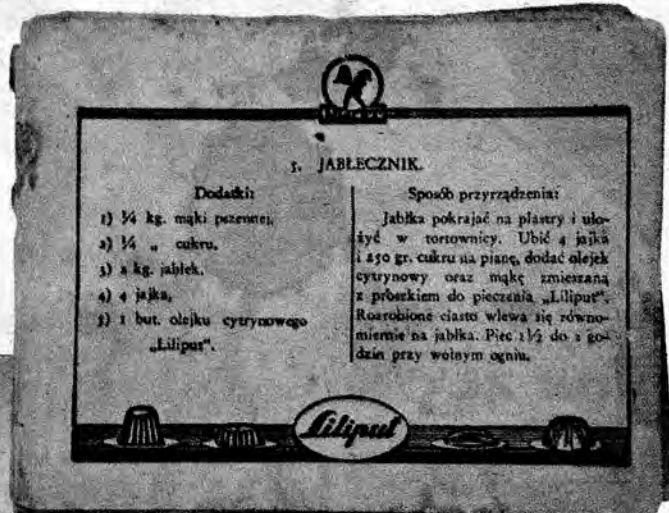 5. JABŁECZNIK.
Dodatki:
1) ¼ kg. mąki pszennej,
2) ¼ „ cukru,
3) 2 kg. jabłek,
4) 4 jajka,
5) 1 but. olejku cytrynowego
„Liliput".
Sposób przyrządzenia:
Jabłka pokrajać na plastry i uło-
żyć w tortownicy. Ubić 4 jajka
i 250 gr. cukru na pianę, dodać olejek
cytrynowy oraz mąkę zmieszaną
z proszkiem do pieczenia „Liliput".
Rozrobione ciasto wlewa się równo-
miernie na jabłka. Piec 1½ do 2 go-
dzin przy wolnym ogniu.
Liliput